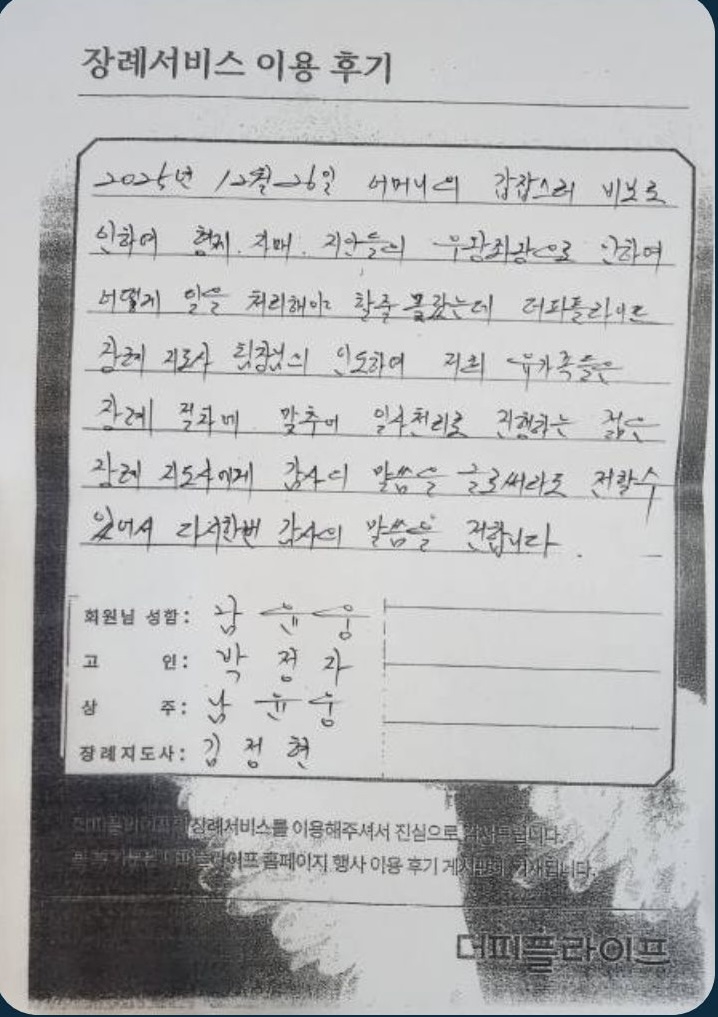 장례서비스 이용 후기
2025년 12월 26일 어머니의 갑잡스러 비보로
인하여 형제.자매.지안들의 우왕좌왕으로 인하여
어떻게 일을 처리해야 할줄 몰랐는데 더피플라이프
장례 지도사 팀장님의 인도하여 저희 유가족들은
장례 절차에 맞추어 일사천리로 진행하는 젊은
장례 지도사에게 감사의 말씀을 글로써라도 전할수
있어서 다시한번 감사의 말씀을 전합니다.
회원님 성함: 남윤웅
고 인: 박정자
상 주: 남윤웅
장례지도사: 김정현
장례서비스를 이용해주셔서 진실으로 감사드립니다.
더피플라이프 홈페이지 행사 이용 후기 게시판에 기재됩니다.
더피플라이프